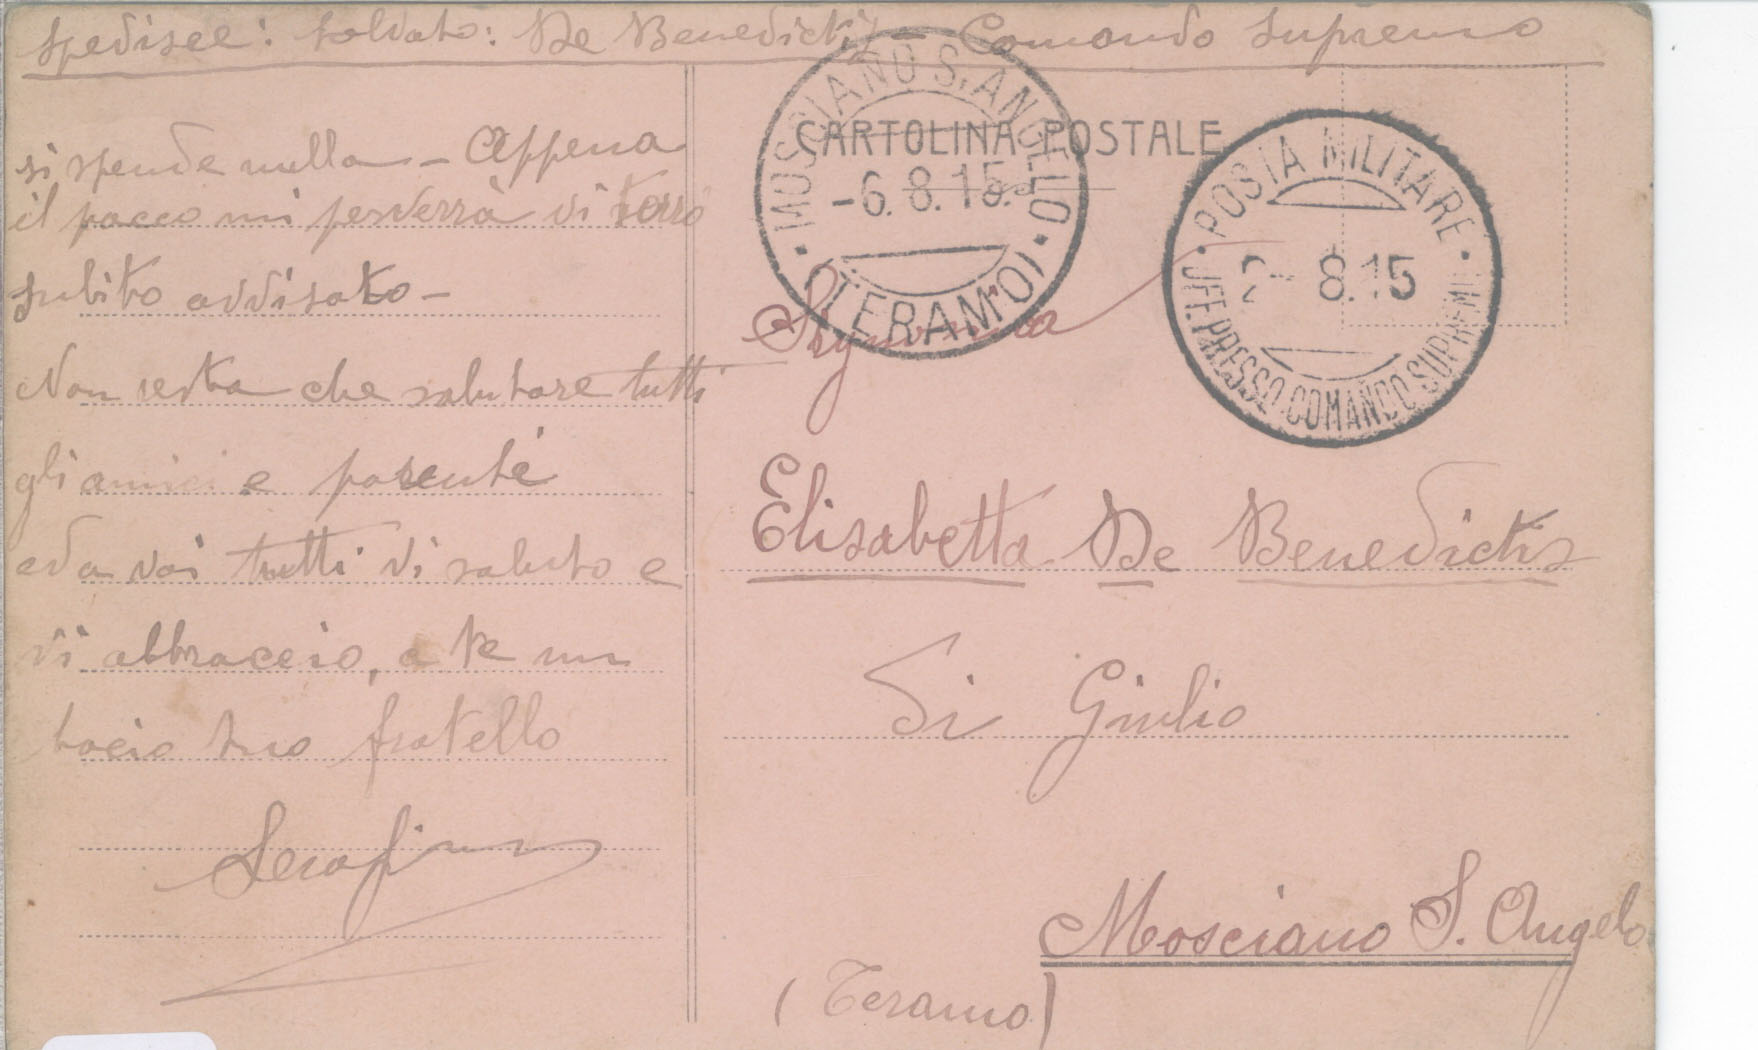 Spedisce: Soldato: De Benedictis - Comando Supremo
si spende nulla - Appena
il pacco mi perverrà vi terrò
subito avvisato -
Non resta che salutare tutti
gli amici e parenti
ed a voi tutti vi saluto e
vi abbraccio, a te un
bacio tuo fratello
Serafino
CARTOLINA POSTALE
MOSCIANO S. ANGELO
-6.8.15.-
(TERAMO)
POSTA MILITARE
2- 8.15
UFF. PRESSO COMANDO SUPREMO
Signorina
Elisabetta De Benedictis
Di Giulio
Mosciano S. Angelo
(Teramo)